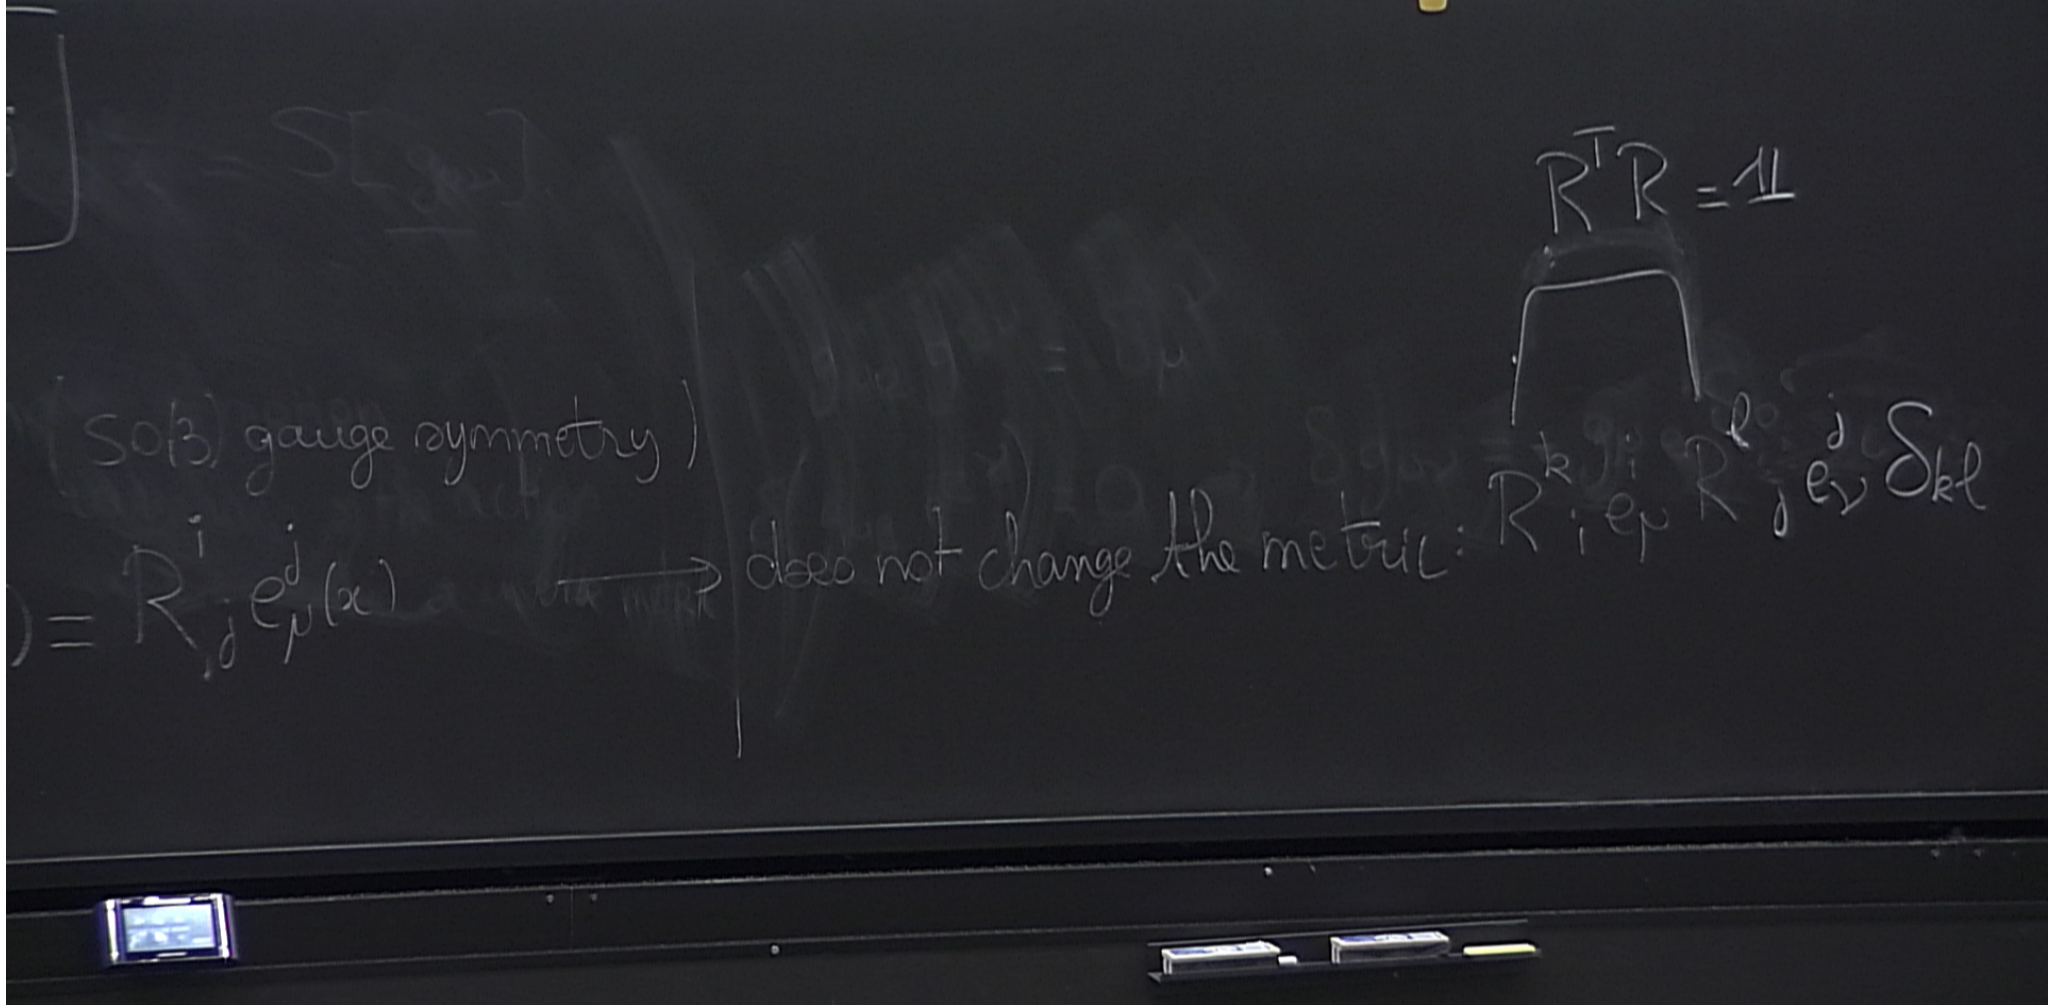 S[g_{μν}]
R^T R = 𝟙
(SO(3) gauge symmetry)
) ≡ R^i_j e^j_μ(x) ⟶ does not change the metric: R^k_i e^i_μ R^l_j e^j_ν δ_{kl}